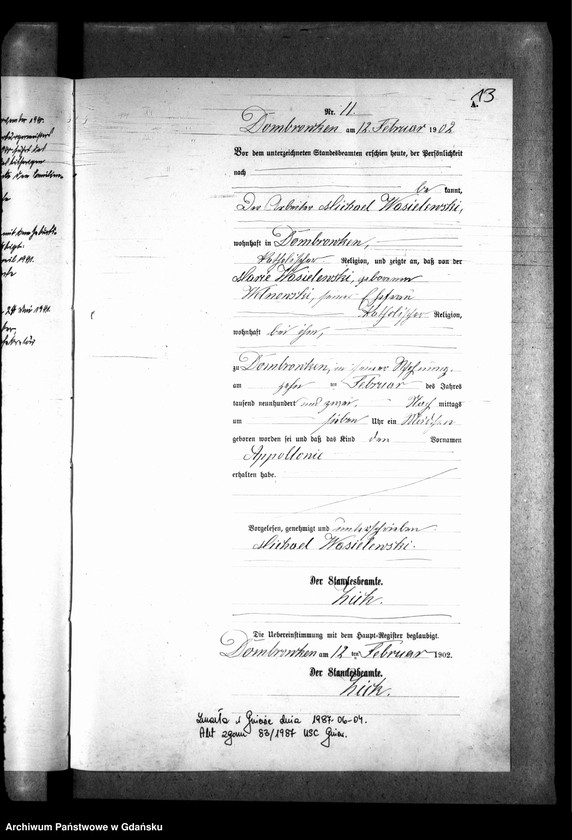 13
A.
Nr. 11.
Dombrowken am 12 Februar 1902
Vor dem unterzeichneten Standesbeamten erschien heute, der Persönlichkeit
nach
be kannt,
Der Arbeiter Michael Wasielewski,
wohnhaft in Dombrowken,
katholischer Religion, und zeigte an, daß von der
Marie Wasielewski, geborenen
seiner Ehefrau
katholischer Religion,
wohnhaft bei ihm,
zu Dombrowken, in seiner Wohnung
am zehn ten Februar des Jahres
tausend neunhundert und zwei, Nach mittags
um sieben Uhr ein Mädchen
geboren worden sei und daß das Kind den Vornamen
Appollonie
erhalten habe.
Vorgelesen, genehmigt und unterschrieben
Michael Wasielewski.
Der Standesbeamte.
Die Uebereinstimmung mit dem Haupt-Register beglaubigt.
Dombrowken am 12 ten Februar 1902.
Der Standesbeamte.
Zmarła w Gniewie dnia 1987-06-04.
Akt zgonu 83/1987 USC Gniew.
Archiwum Państwowe w Gdańsku